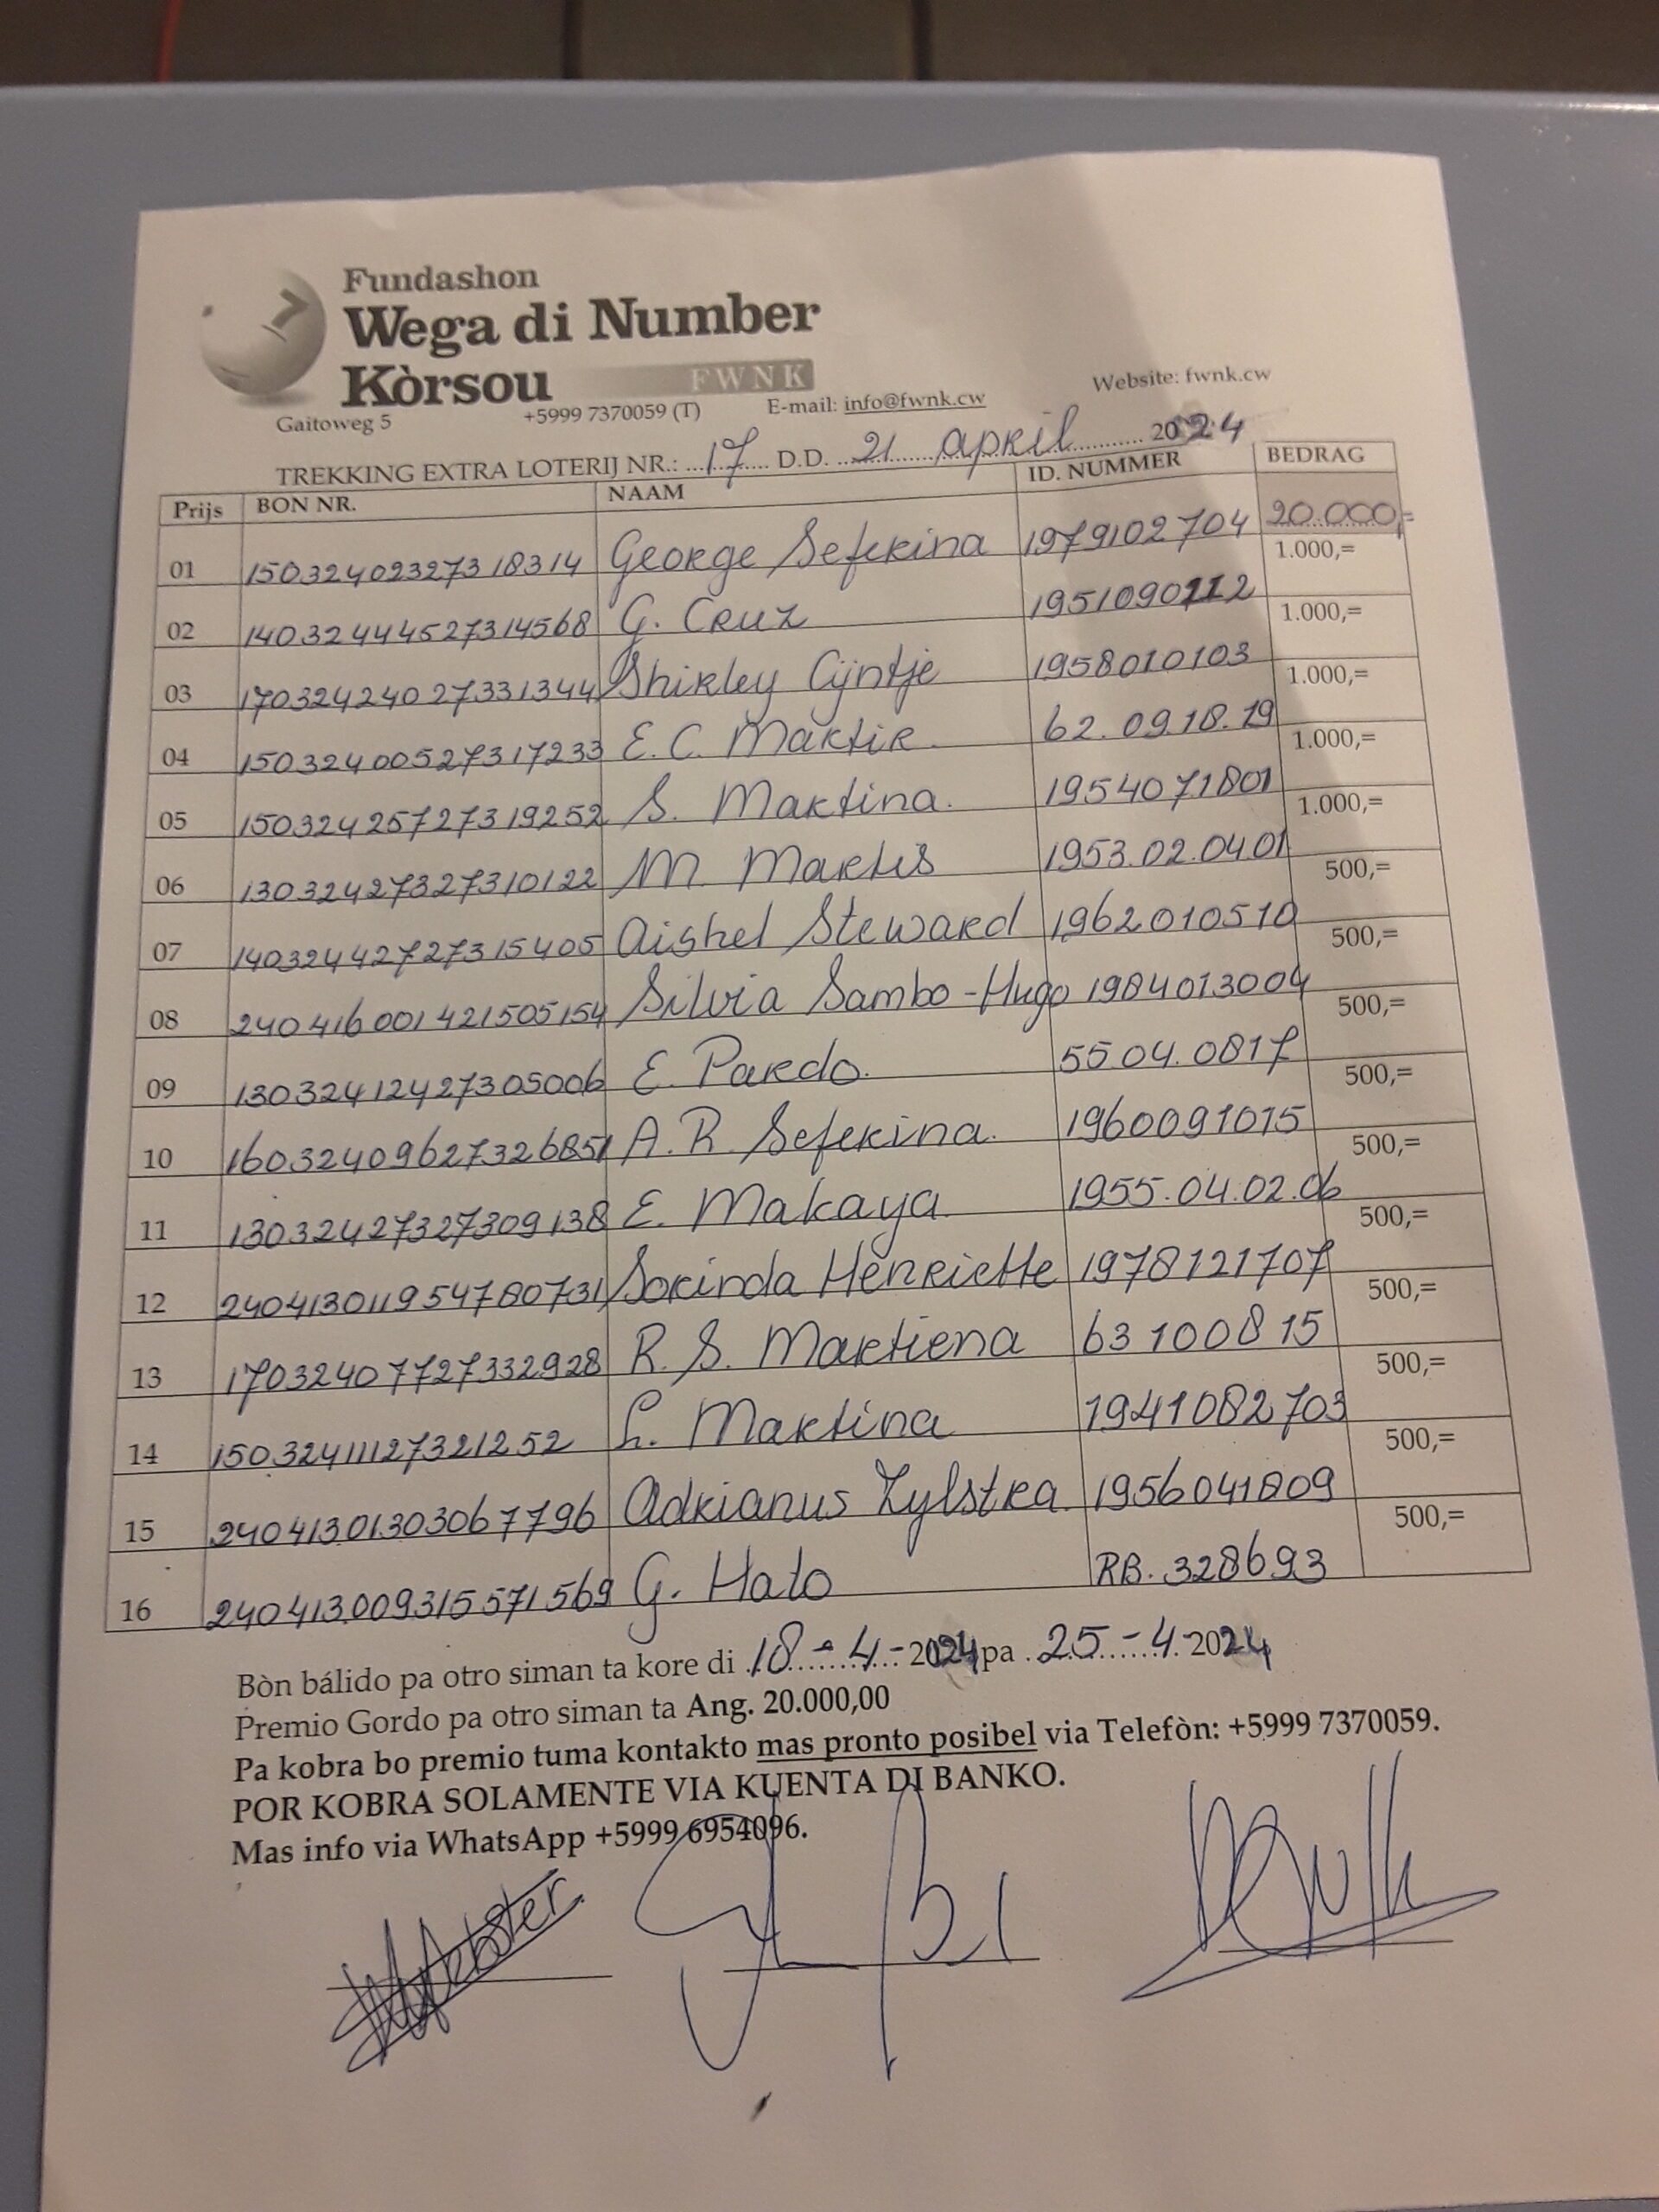 Fundashon
Wega di Number
Kòrsou FWNK
Gaitoweg 5 +5999 7370059 (T) E-mail: info@fwnk.cw Website: fwnk.cw
TREKKING EXTRA LOTERIJ NR.: 17 D.D. 21 april 2024
Prijs BON NR. NAAM ID. NUMMER BEDRAG
20.000,=
01 150324023273 18314 George Seferina 1979102704 1.000,=
02 140324444527314568 G. Cruz 1951090112 1.000,=
03 17032424027331344 Shirley Cijntje 1958010103 1.000,=
04 15032400527317233 E.C. Martir 62.09.18.19 1.000,=
05 15032425727319252 S. Martina. 1954071801 1.000,=
06 13032427327310122 M. Martis 1953.02.0401 500,=
07 14032442727315405 Aishel Steward 1962010510 500,=
08 240416001421505154 Silvia Sambo-Hugo 1984013004 500,=
09 13032412427305006 E. Pardo. 55.04.0817 500,=
10 16032409627326851 A.R. Seferina. 1960091015 500,=
11 13032427327309138 E. Makaya. 1955.04.02.06 500,=
12 240413011954780731 Sorinda Henriette 1978121707 500,=
13 17032407727332928 R.S. Martiena 63100815 500,=
14 15032411127321252 L. Martina 1941082703 500,=
15 24041301303067796 Adrianus Zylstra. 1956041809 500,=
16 240413009315571569 G. Hato RB. 328693 500,=
Bòn bálido pa otro siman ta kore di 18-4-2024 pa 25-4-2024
Premio Gordo pa otro siman ta Ang. 20.000,00
Pa kobra bo premio tuma kontakto mas pronto posibel via Telefòn: +5999 7370059.
POR KOBRA SOLAMENTE VIA KUENTA DI BANKO.
Mas info via WhatsApp +5999 6954096.
Webster